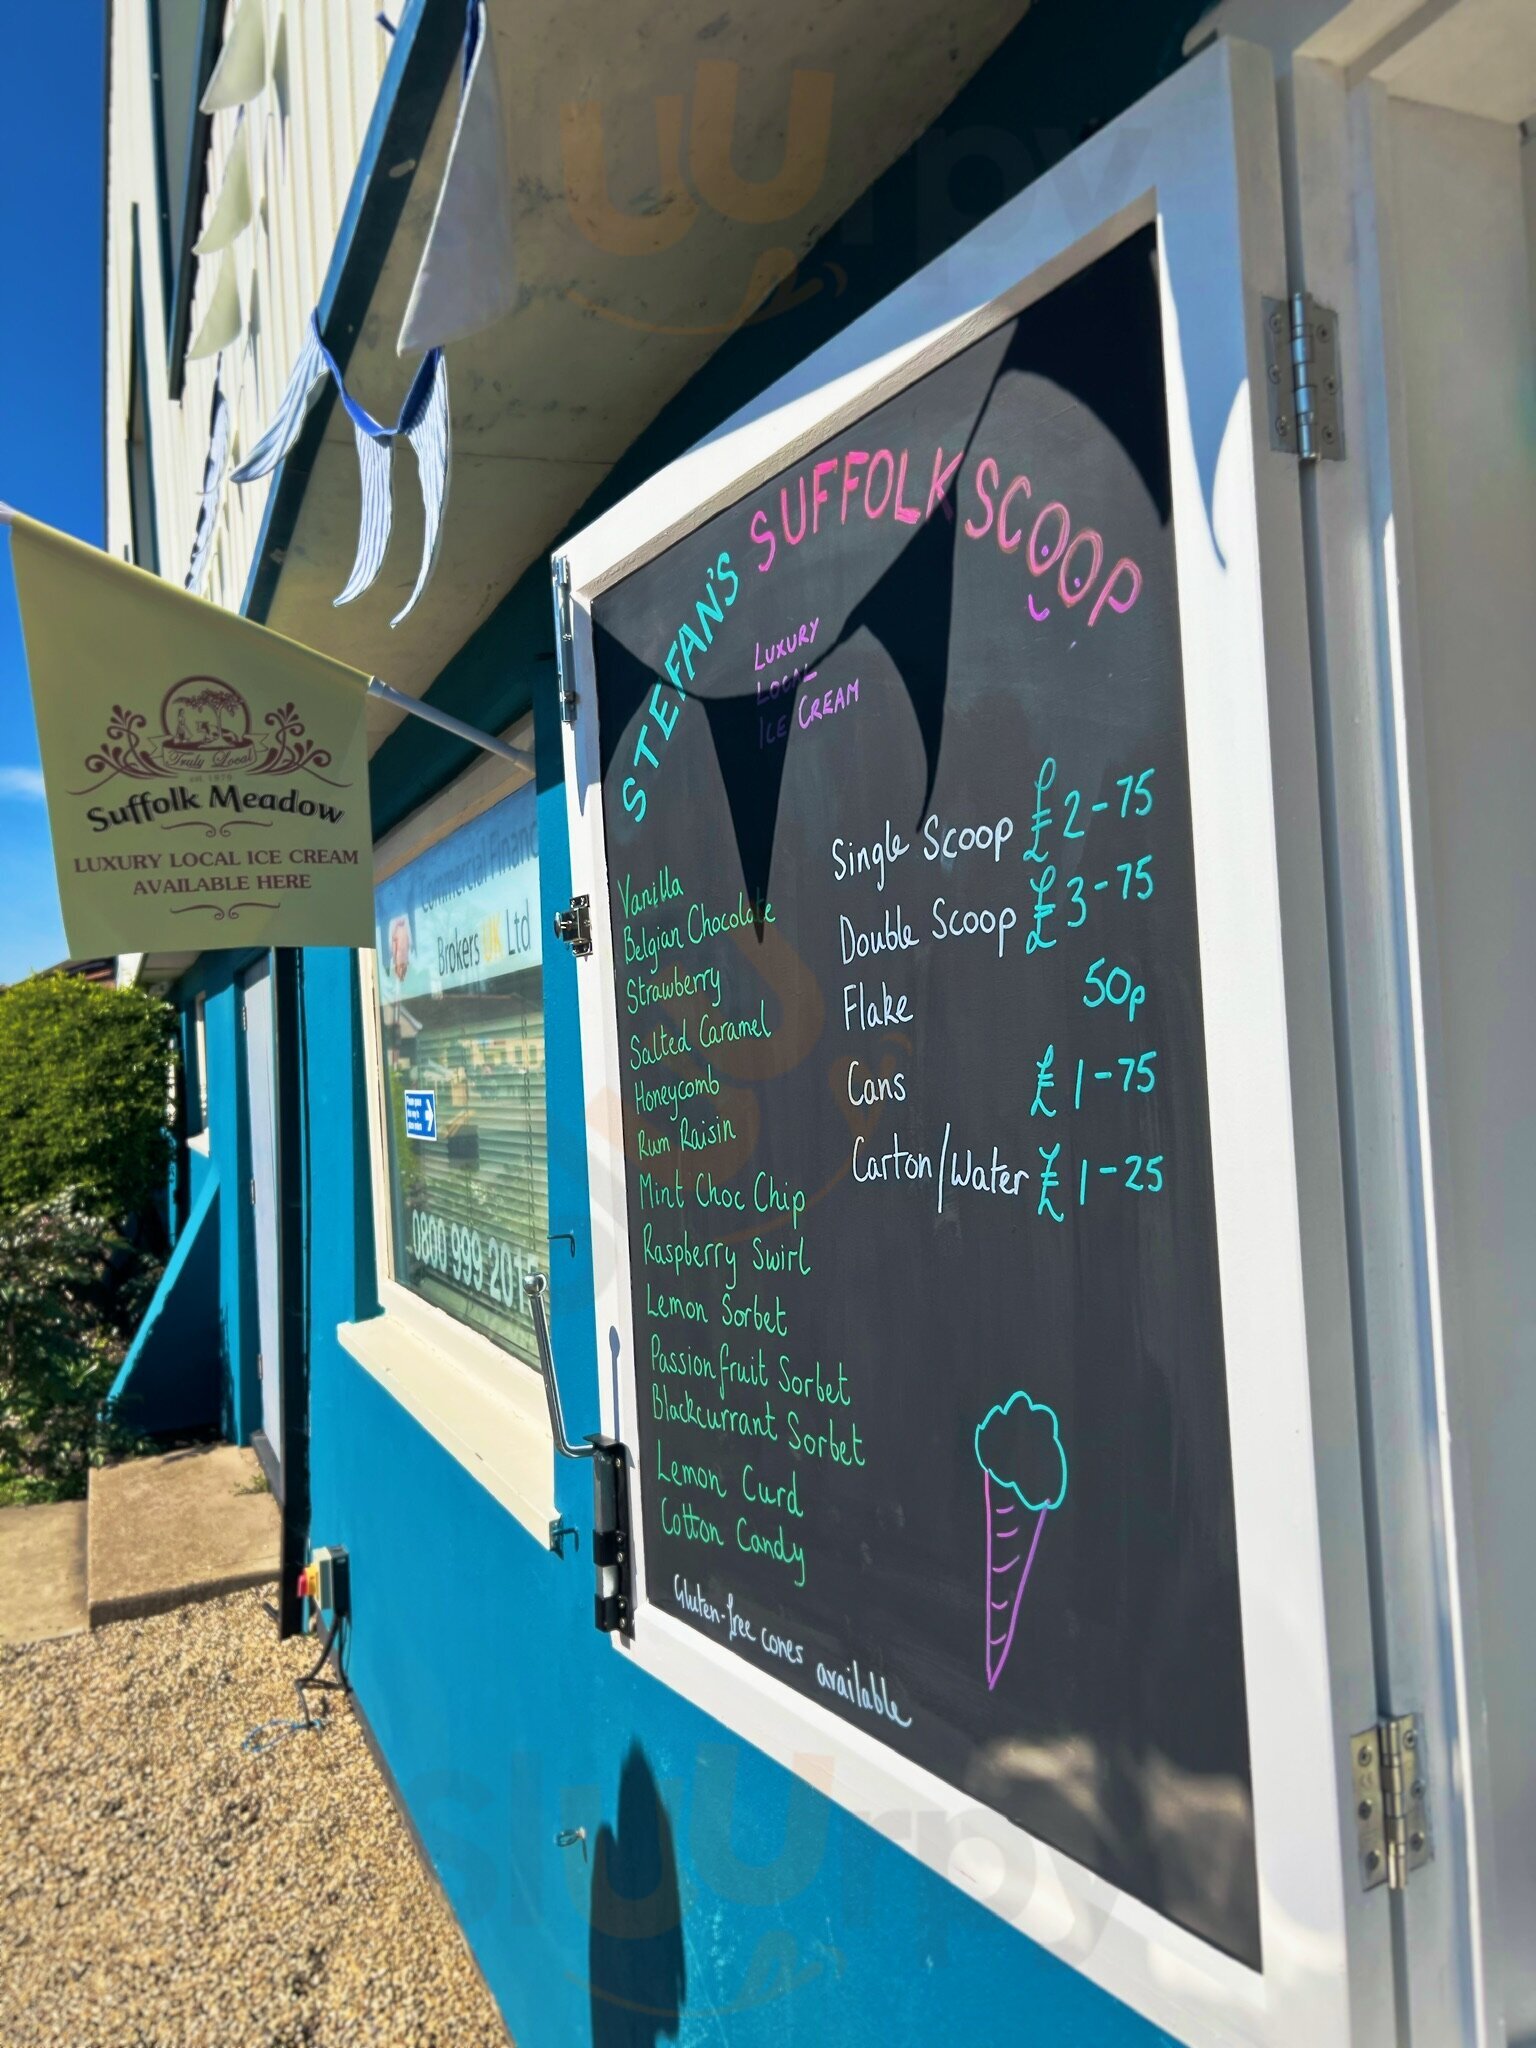 STEFAN'S SUFFOLK SCOOP
LUXURY
LOCAL
ICE CREAM
Vanilla
Belgian Chocolate
Strawberry
Salted Caramel
Honeycomb
Rum Raisin
Mint Choc Chip
Raspberry Swirl
Lemon Sorbet
Passionfruit Sorbet
Blackcurrant Sorbet
Lemon Curd
Cotton Candy
Gluten-free cones available
Single Scoop £2-75
Double Scoop £3-75
Flake 50p
Cans £1-75
Carton/Water £1-25
Truly Local
est. 1979
Suffolk Meadow
LUXURY LOCAL ICE CREAM
AVAILABLE HERE
Commercial Financ
Brokers UK Ltd
0800 999 201
slurpy